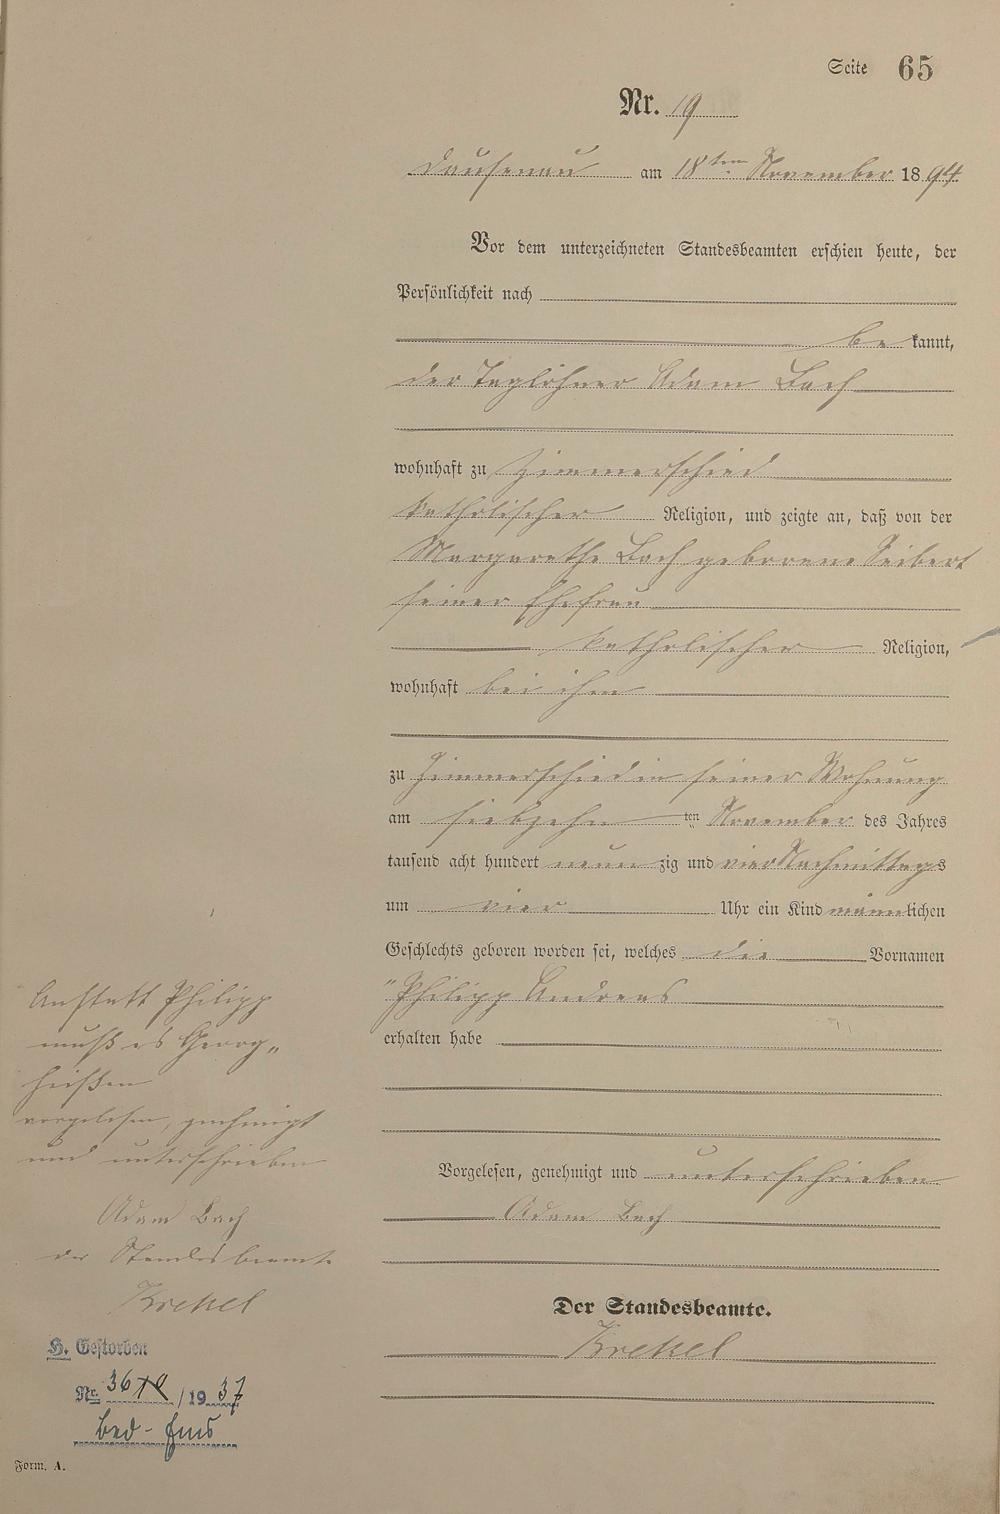 Seite 65
Nr. 19
Dausenau am 18ten November 1894
Vor dem unterzeichneten Standesbeamten erschien heute, der
Persönlichkeit nach
be kannt,
der Taglöhner Adam Bach
wohnhaft zu Zimmerschied
katholischer Religion, und zeigte an, daß von der
Margarethe Bach geborene Seibert
seiner Ehefrau
katholischer Religion,
wohnhaft bei ihm
zu Zimmerschied in seiner Wohnung
am siebzehn ten November des Jahres
tausend acht hundert neun zig und vier Nachmittags
um vier Uhr ein Kind männlichen
Geschlechts geboren worden sei, welches die Vornamen
"Philipp Andreas
erhalten habe
Vorgelesen, genehmigt und unterschrieben
Adam Bach
Der Standesbeamte.
Krekel
Anstatt Philipp
muß es Georg„
heißen
vorgelesen, genehmigt
und unterschrieben
Adam Bach
der Standesbeamte
Krekel
H. Gestorben
Nr. /1937
Bad-Ems
Form. A.